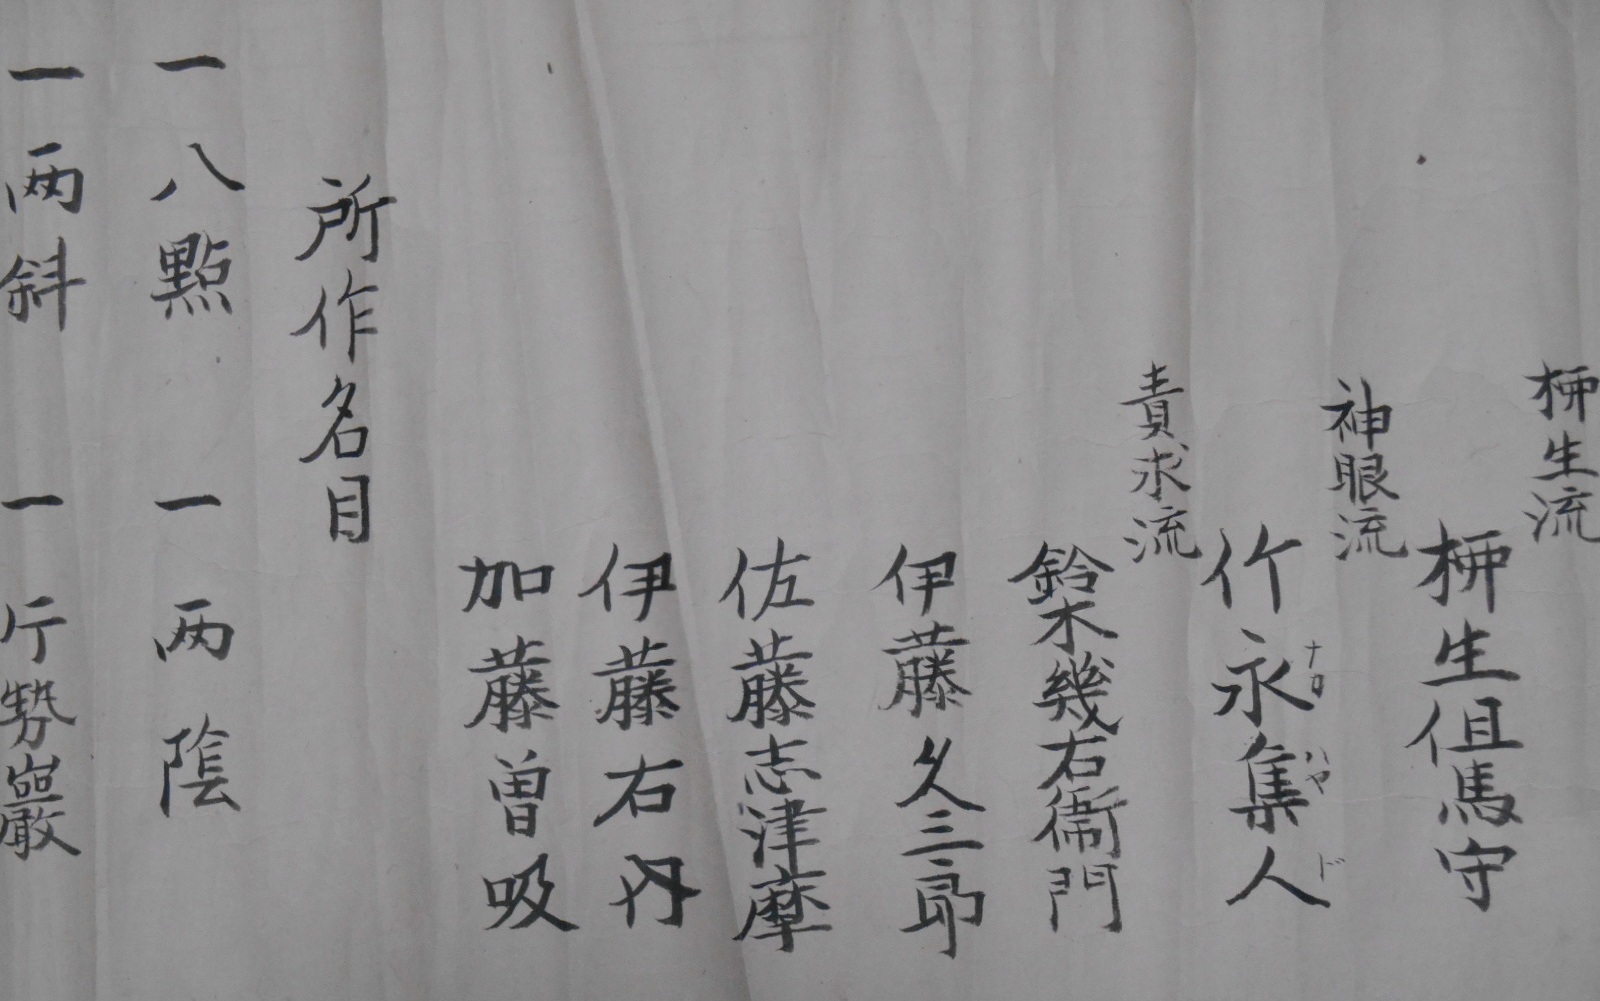 柳生流
柳生但馬守
神眼流
竹永集人
ナロ ハヤ ド
責求流
鈴木幾右衛門
伊藤久三郎
佐藤志津摩
伊藤右内
加藤曽吸
所作名目
一八點 一两陰
一两斜 一斤勢巌